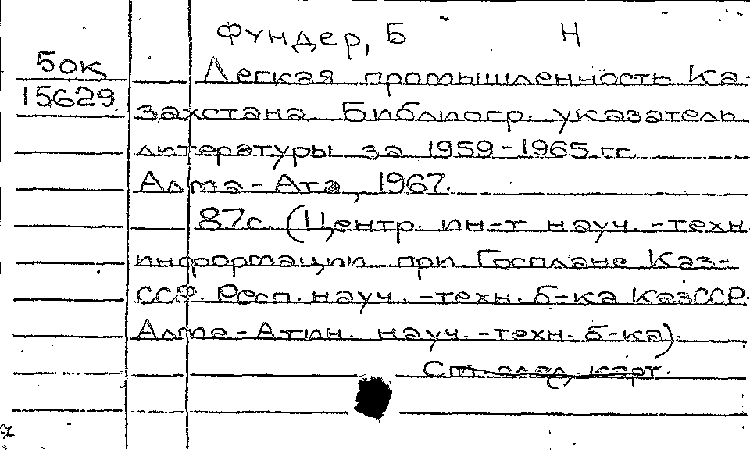 Фундер, Б Н
50к
15629
Легкая промышленность Ка-
захстана. Библиогр. указатель
литературы за 1959-1965 гг.
Алма-Ата, 1967.
87с. (Центр. ин-т науч.-техн.
информации при Госплане Каз-
ССР. Респ. науч.-техн. б-ка КазССР.
Алма-Атин. науч.-техн. б-ка).
См. след. карт.